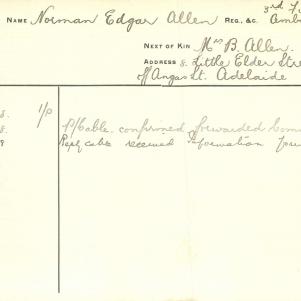 NAME Norman Edgar Allen REG., &C. 3rd F
Amb
NEXT OF KIN Mrs B. Allen.
ADDRESS 8. Little Elder Stre
off Angas St. Adelaide
8. 1/P
8. P/Cable confirmed forwarded
9 Reply cable received Information